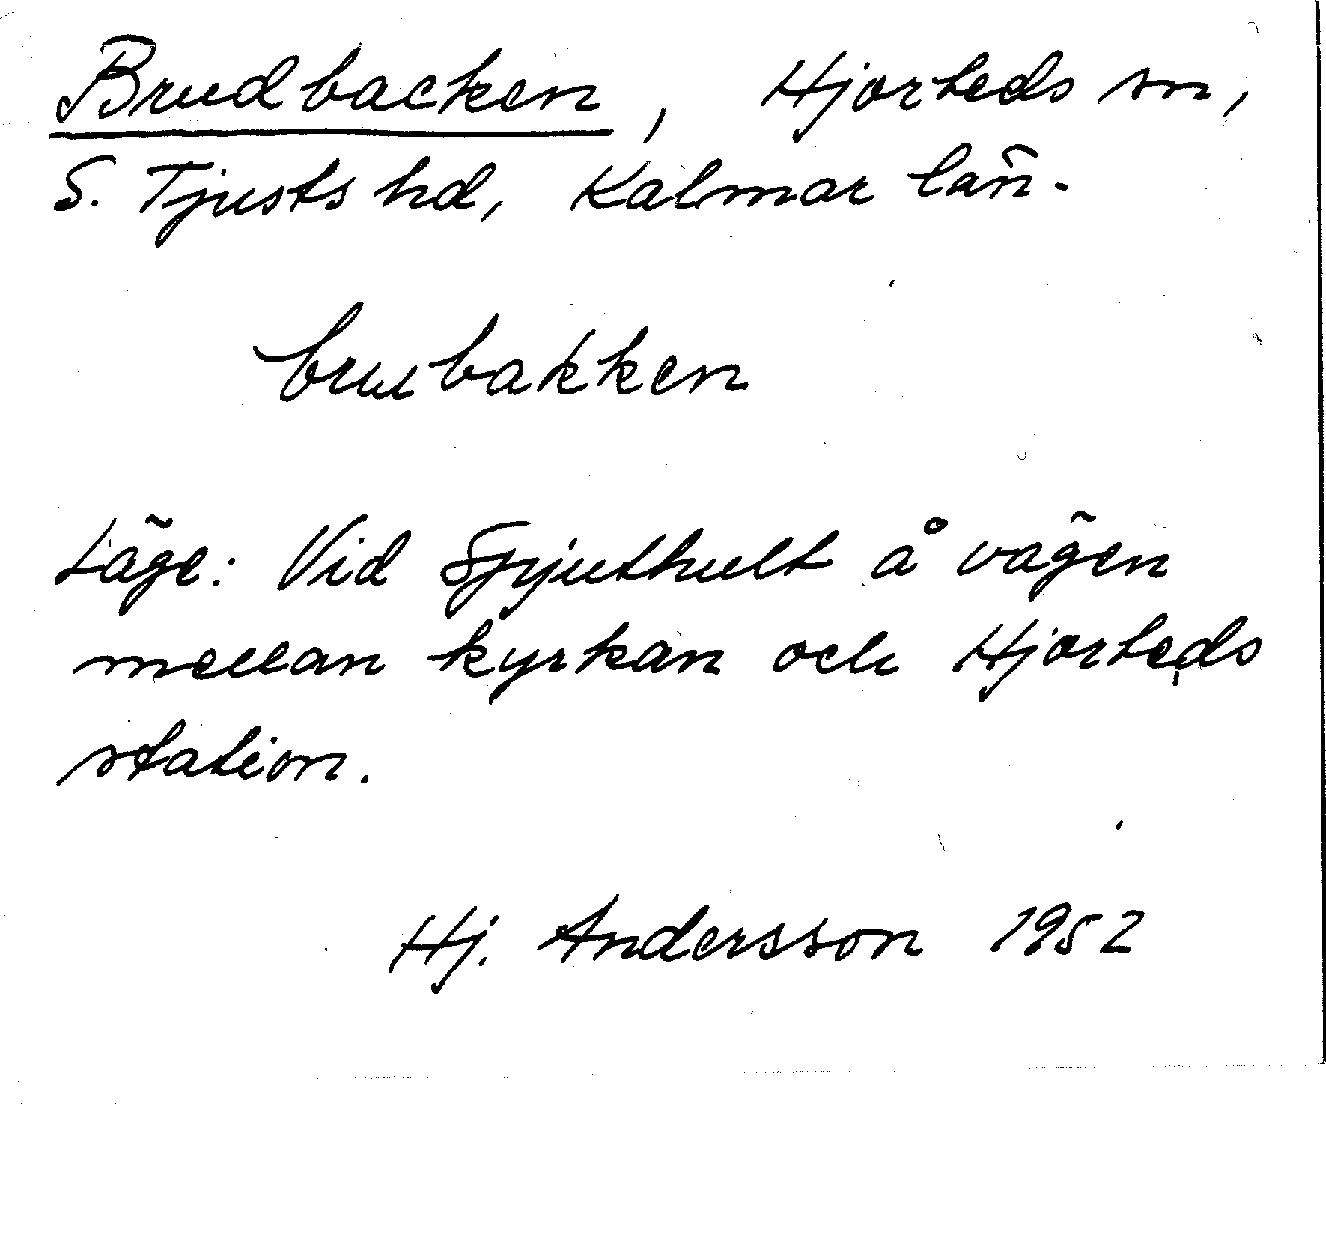 Brudbacken, Hjorteds sn,
S. Tjusts hd, Kalmar län.
brubakken
Läge: Vid Spjuthult å vägen
mellan kyrkan och Hjorteds
station.
Hj. Andersson 1952